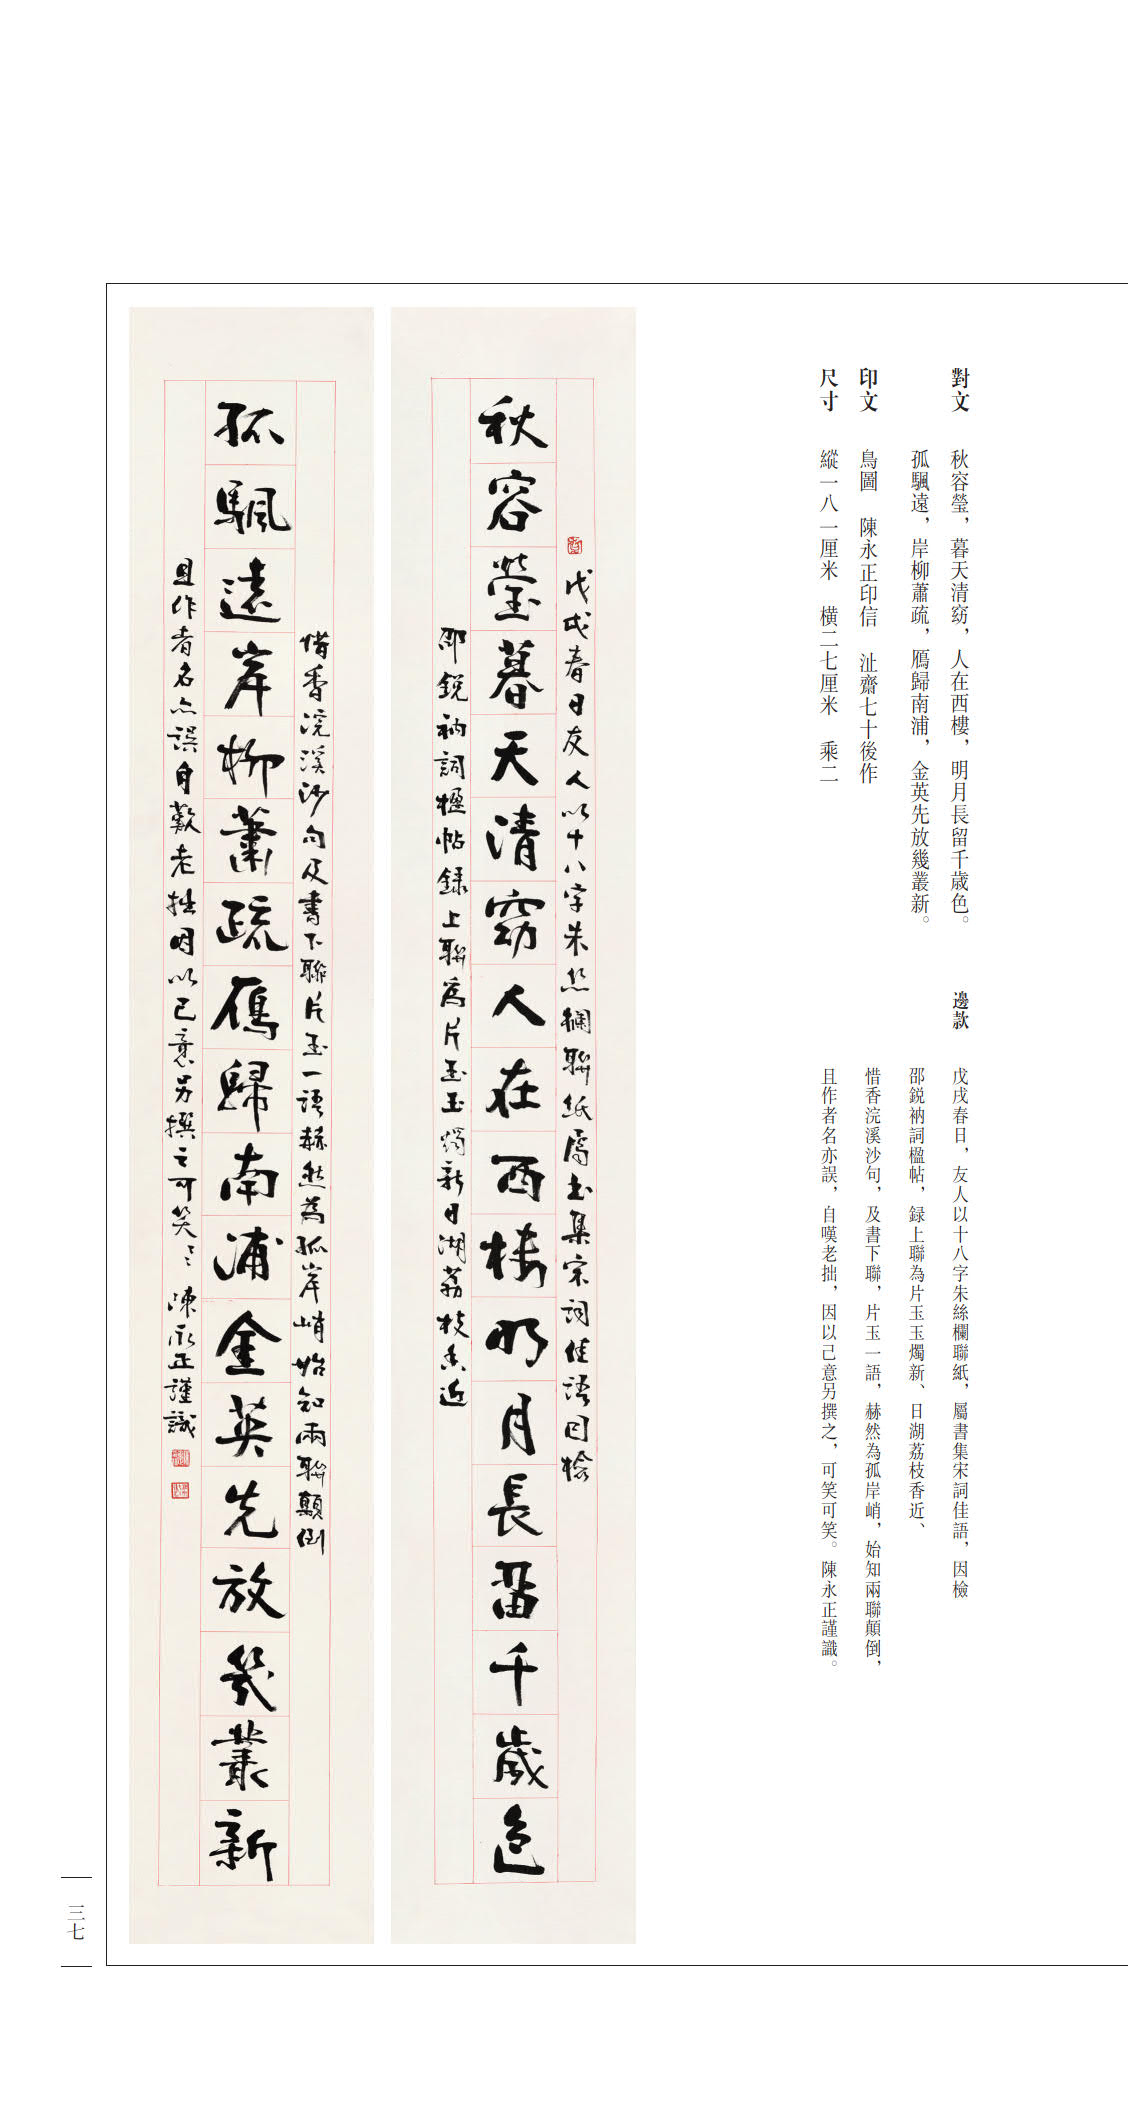 對文 秋容瑩，暮天清窈，人在西樓，明月長留千歲色。
孤颿遠，岸柳蕭疏，鴈歸南浦，金英先放幾叢新。
印文 鳥圖 陳永正印信 沚齋七十後作
尺寸 縱一八一厘米 橫二七厘米 乘二
邊款 戊戌春日，友人以十八字朱絲欄聯紙，屬書集宋詞佳語，因檢
邵鋭衲詞楹帖，録上聯為片玉玉燭新、日湖荔枝香近、
惜香浣溪沙句，及書下聯，片玉一語，赫然為孤岸峭，始知兩聯顛倒，
且作者名亦誤，自嘆老拙，因以己意另撰之，可笑可笑。陳永正謹識。
戊戌春日友人以十八字朱絲欄聯紙屬書集宋詞佳語因檢
秋容瑩暮天清窈人在西樓明月長留千歲色
邵鋭衲詞楹帖録上聯為片玉玉燭新日湖荔枝香近
惜香浣溪沙句及書下聯片玉一語赫然為孤岸峭始知兩聯顛倒
孤颿遠岸柳蕭疏鴈歸南浦金英先放幾叢新
且作者名亦誤自歎老拙因以己意另撰之可笑〻陳永正謹識
三七